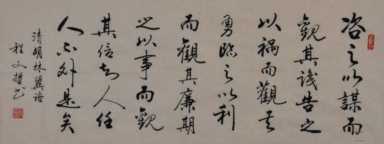 咨之以謀而
觀其識告之
以禍而觀其
勇臨之以利
而觀其廉期
之以事而觀
其信知人任
人不外是矣
清胡林翼語
程文